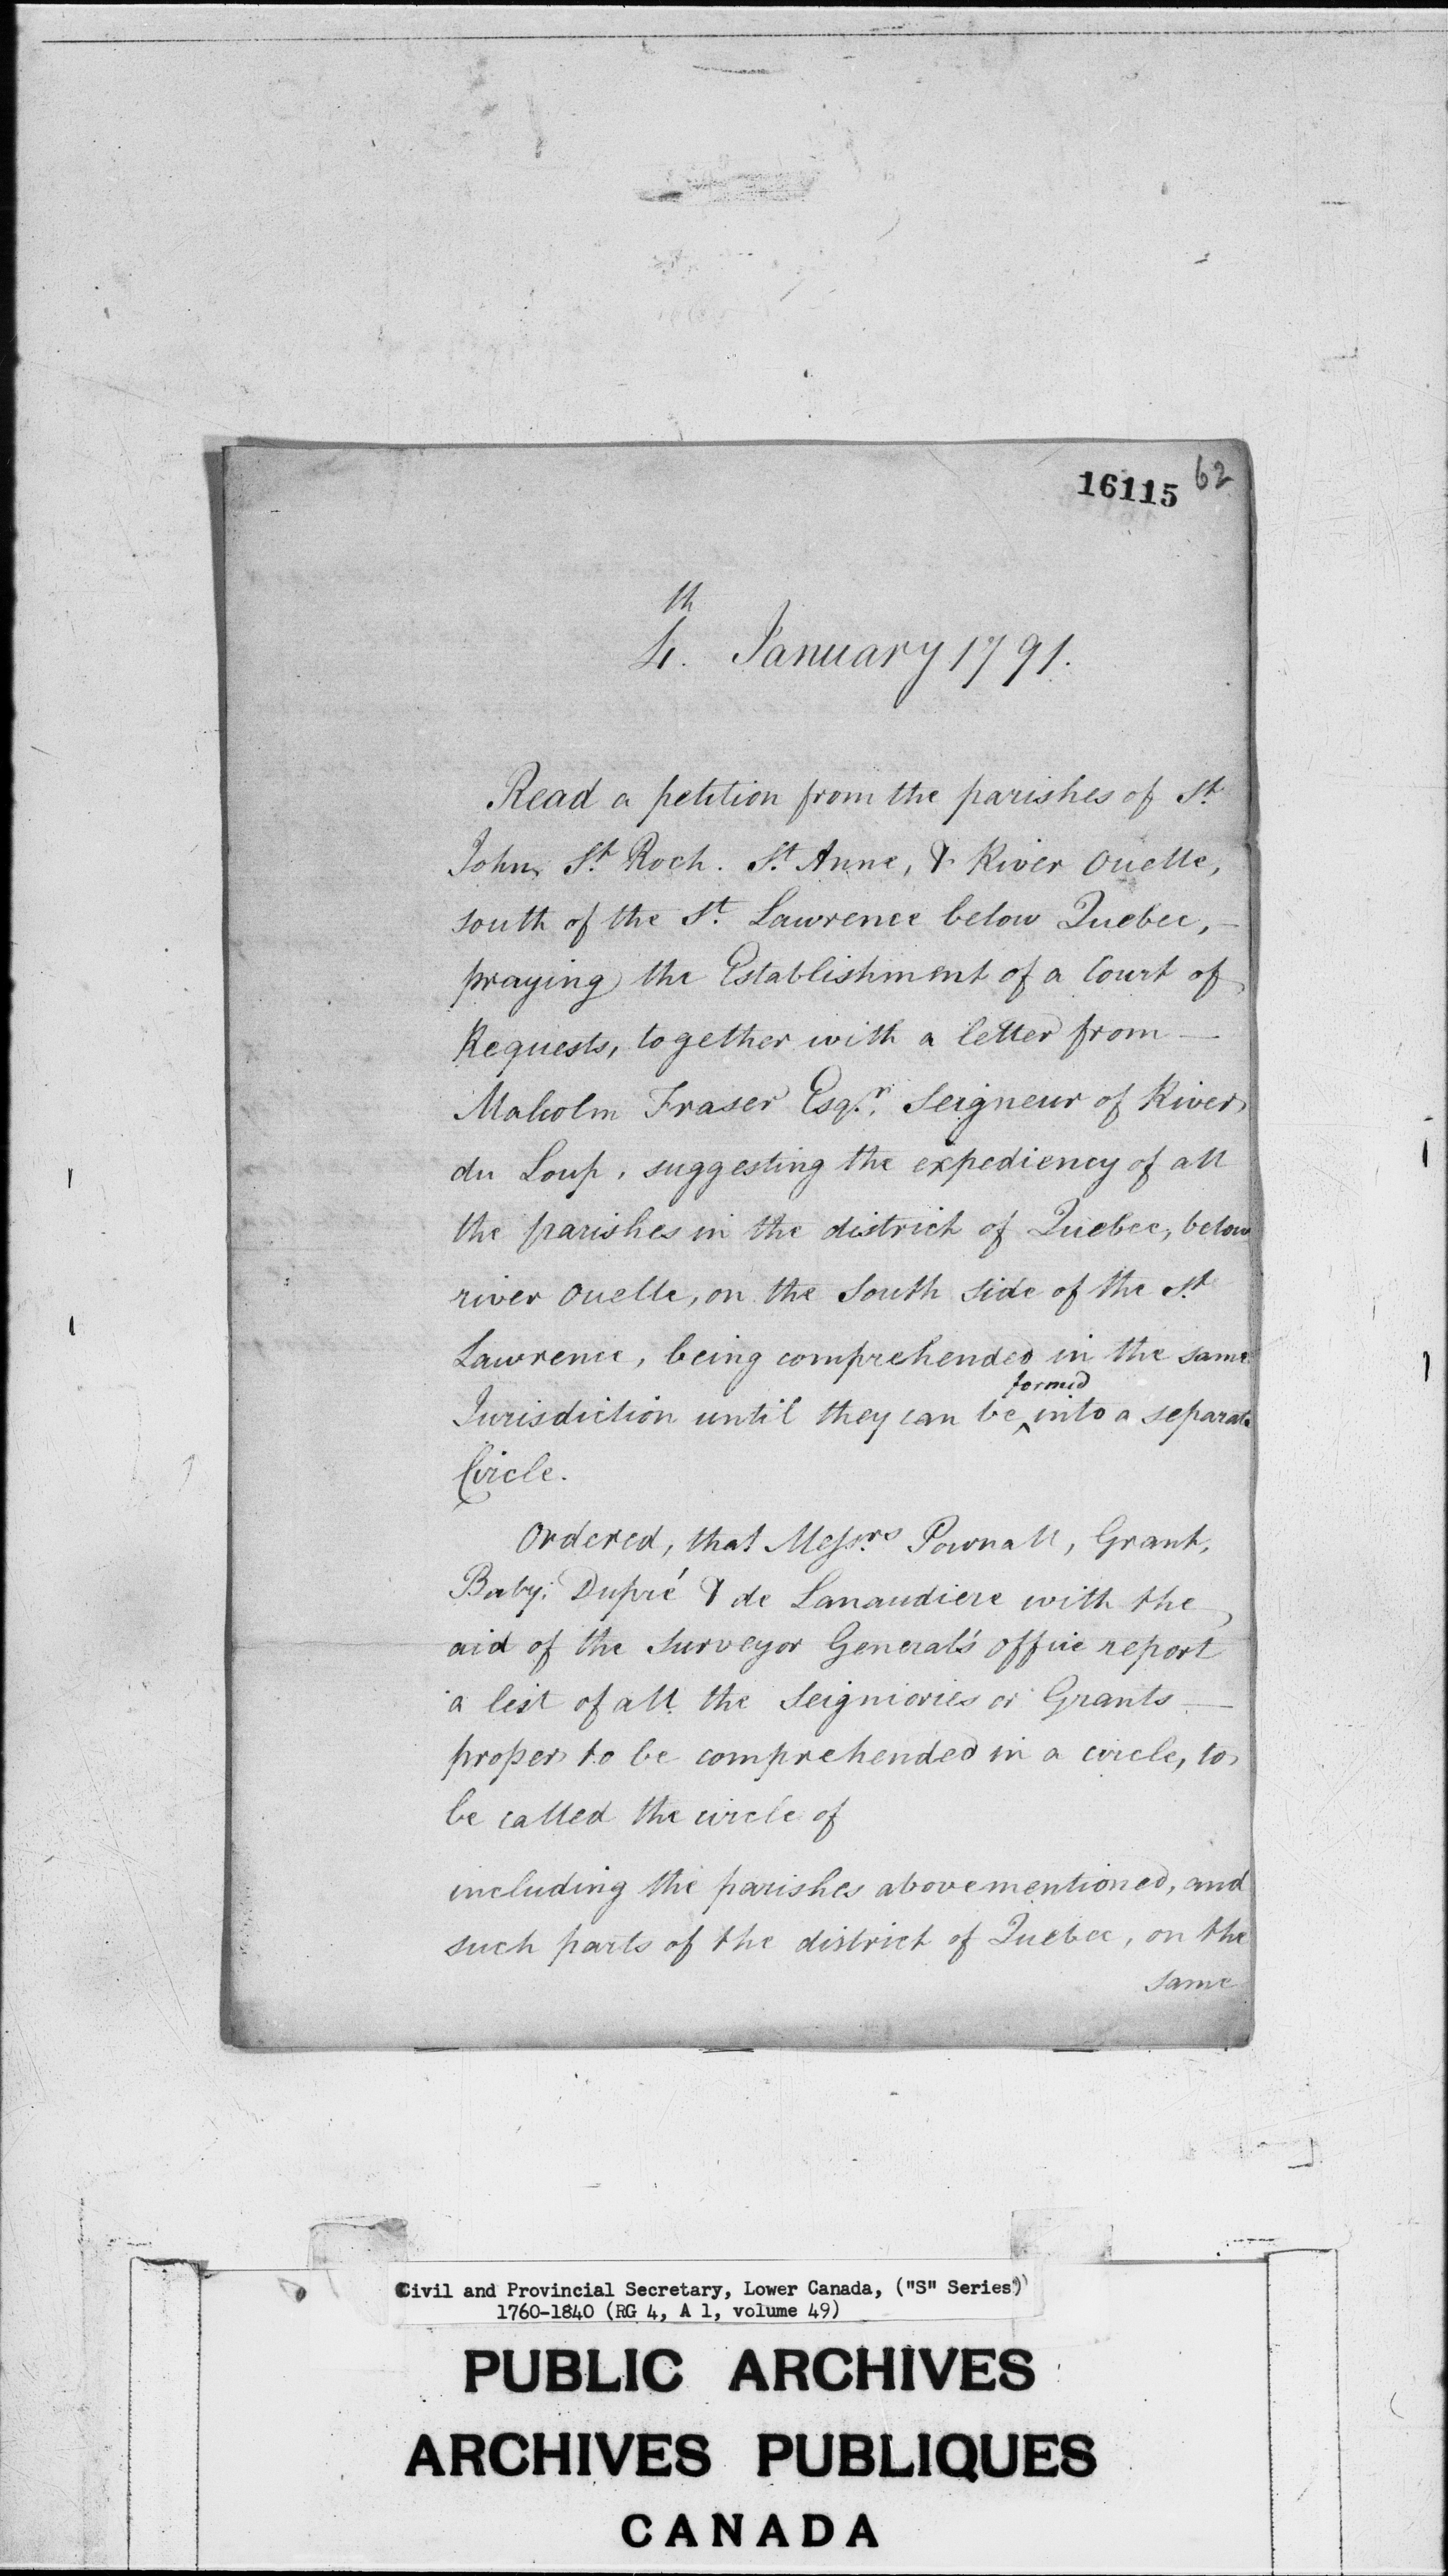 16115 62
4.th January 1791.
Read a petition from the parishes of St.
John, St. Roch. St. Anne, & River Ouelle,
south of the St. Lawrence below Quebec, -
praying the Establishment of a Court of
Requests, together with a letter from —
Malcolm Fraser Esqr. Seigneur of River
du Loup, suggesting the expediency of all
the parishes in the district of Quebec, below
river Ouelle, on the South side of the St.
Lawrence, being comprehended in the same
Jurisdiction until they can be ^formed into a separate
Circle.
Ordered, that Messrs. Pownall, Grant,
Baby, Dupré & de Lanaudiere with the
aid of the Surveyor General's office report
a list of all the Seigniories or Grants —
proper to be comprehended in a circle, to
be called the circle of
including the parishes abovementioned, and
such parts of the district of Quebec, on the
same
Civil and Provincial Secretary, Lower Canada, ("S" Series)
1760-1840 (RG 4, A 1, volume 49)
PUBLIC ARCHIVES
ARCHIVES PUBLIQUES
CANADA